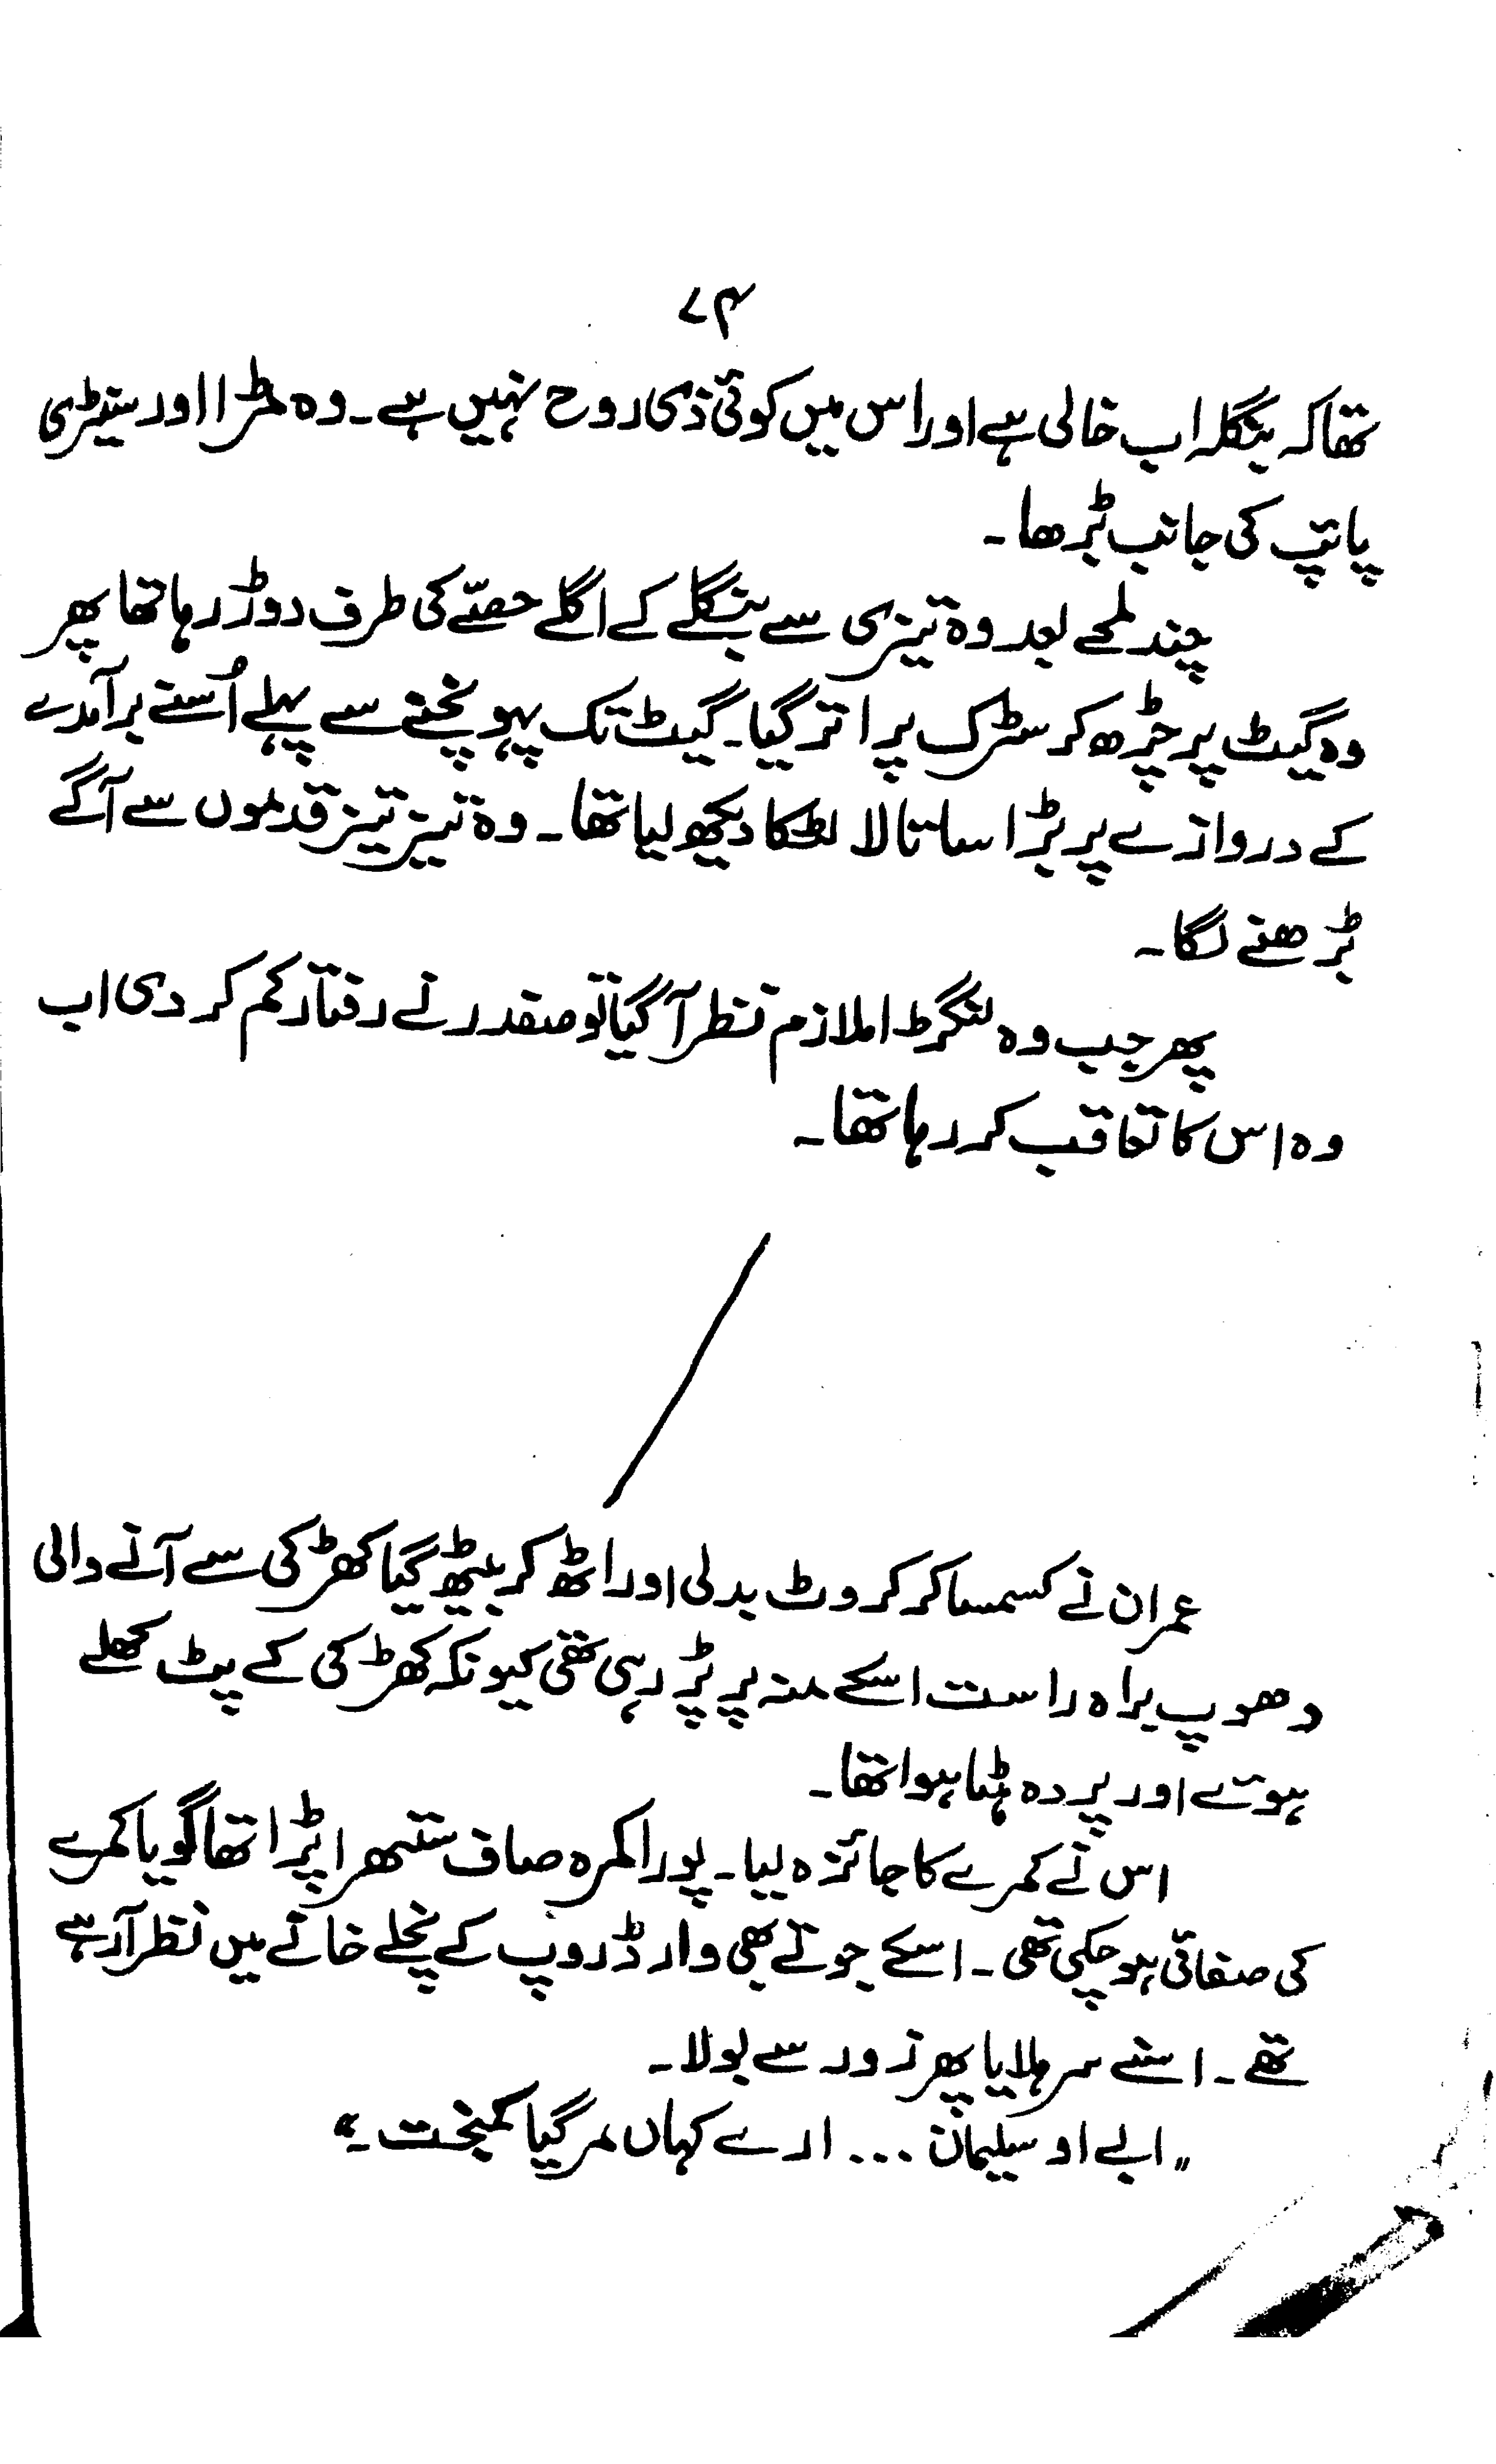 ۷۴
تھا کہ بنگلہ اب خالی ہے اور اس میں کوئی ذی روح نہیں ہے۔ وہ مڑا اور سینٹری
پائپ کی جانب بڑھا۔
چند لمحے بعد وہ تیزی سے بنگلے کے اگلے حصّے کی طرف دوڑ رہا تھا پھر
وہ گیٹ پر چڑھ کر سڑک پر اتر گیا۔ گیٹ تک پہونچنے سے پہلے اُسنے برآمدے
کے دروازے پر بڑا سا تالا لٹکا دیکھ لیا تھا۔ وہ تیز تیز قدموں سے آگے
بڑھنے لگا۔
پھر جب وہ لنگڑا ملازم نظر آ گیا تو صفدر نے رفتار کم کر دی اب
وہ اس کا تعاقب کر رہا تھا۔
عمران نے کسمسا کر کروٹ بدلی اور اٹھ کر بیٹھ گیا کھڑکی سے آنے والی
دھوپ براہ راست اسکے منہ پر پڑ رہی تھی کیونکہ کھڑکی کے پٹ کھلے
ہوئے اور پردہ ہٹا ہوا تھا۔
اس نے کمرے کا جائزہ لیا۔ پورا کمرہ صاف ستھرا پڑا تھا گویا کمرے
کی صفائی ہو چکی تھی۔ اسکے جوتے بھی وارڈروپ کے نچلے خانے میں نظر آ رہے
تھے۔ اسنے سر ہلایا پھر زور سے بولا۔
"ابے او سلیمان ... ارے کہاں مر گیا کمبخت۔"